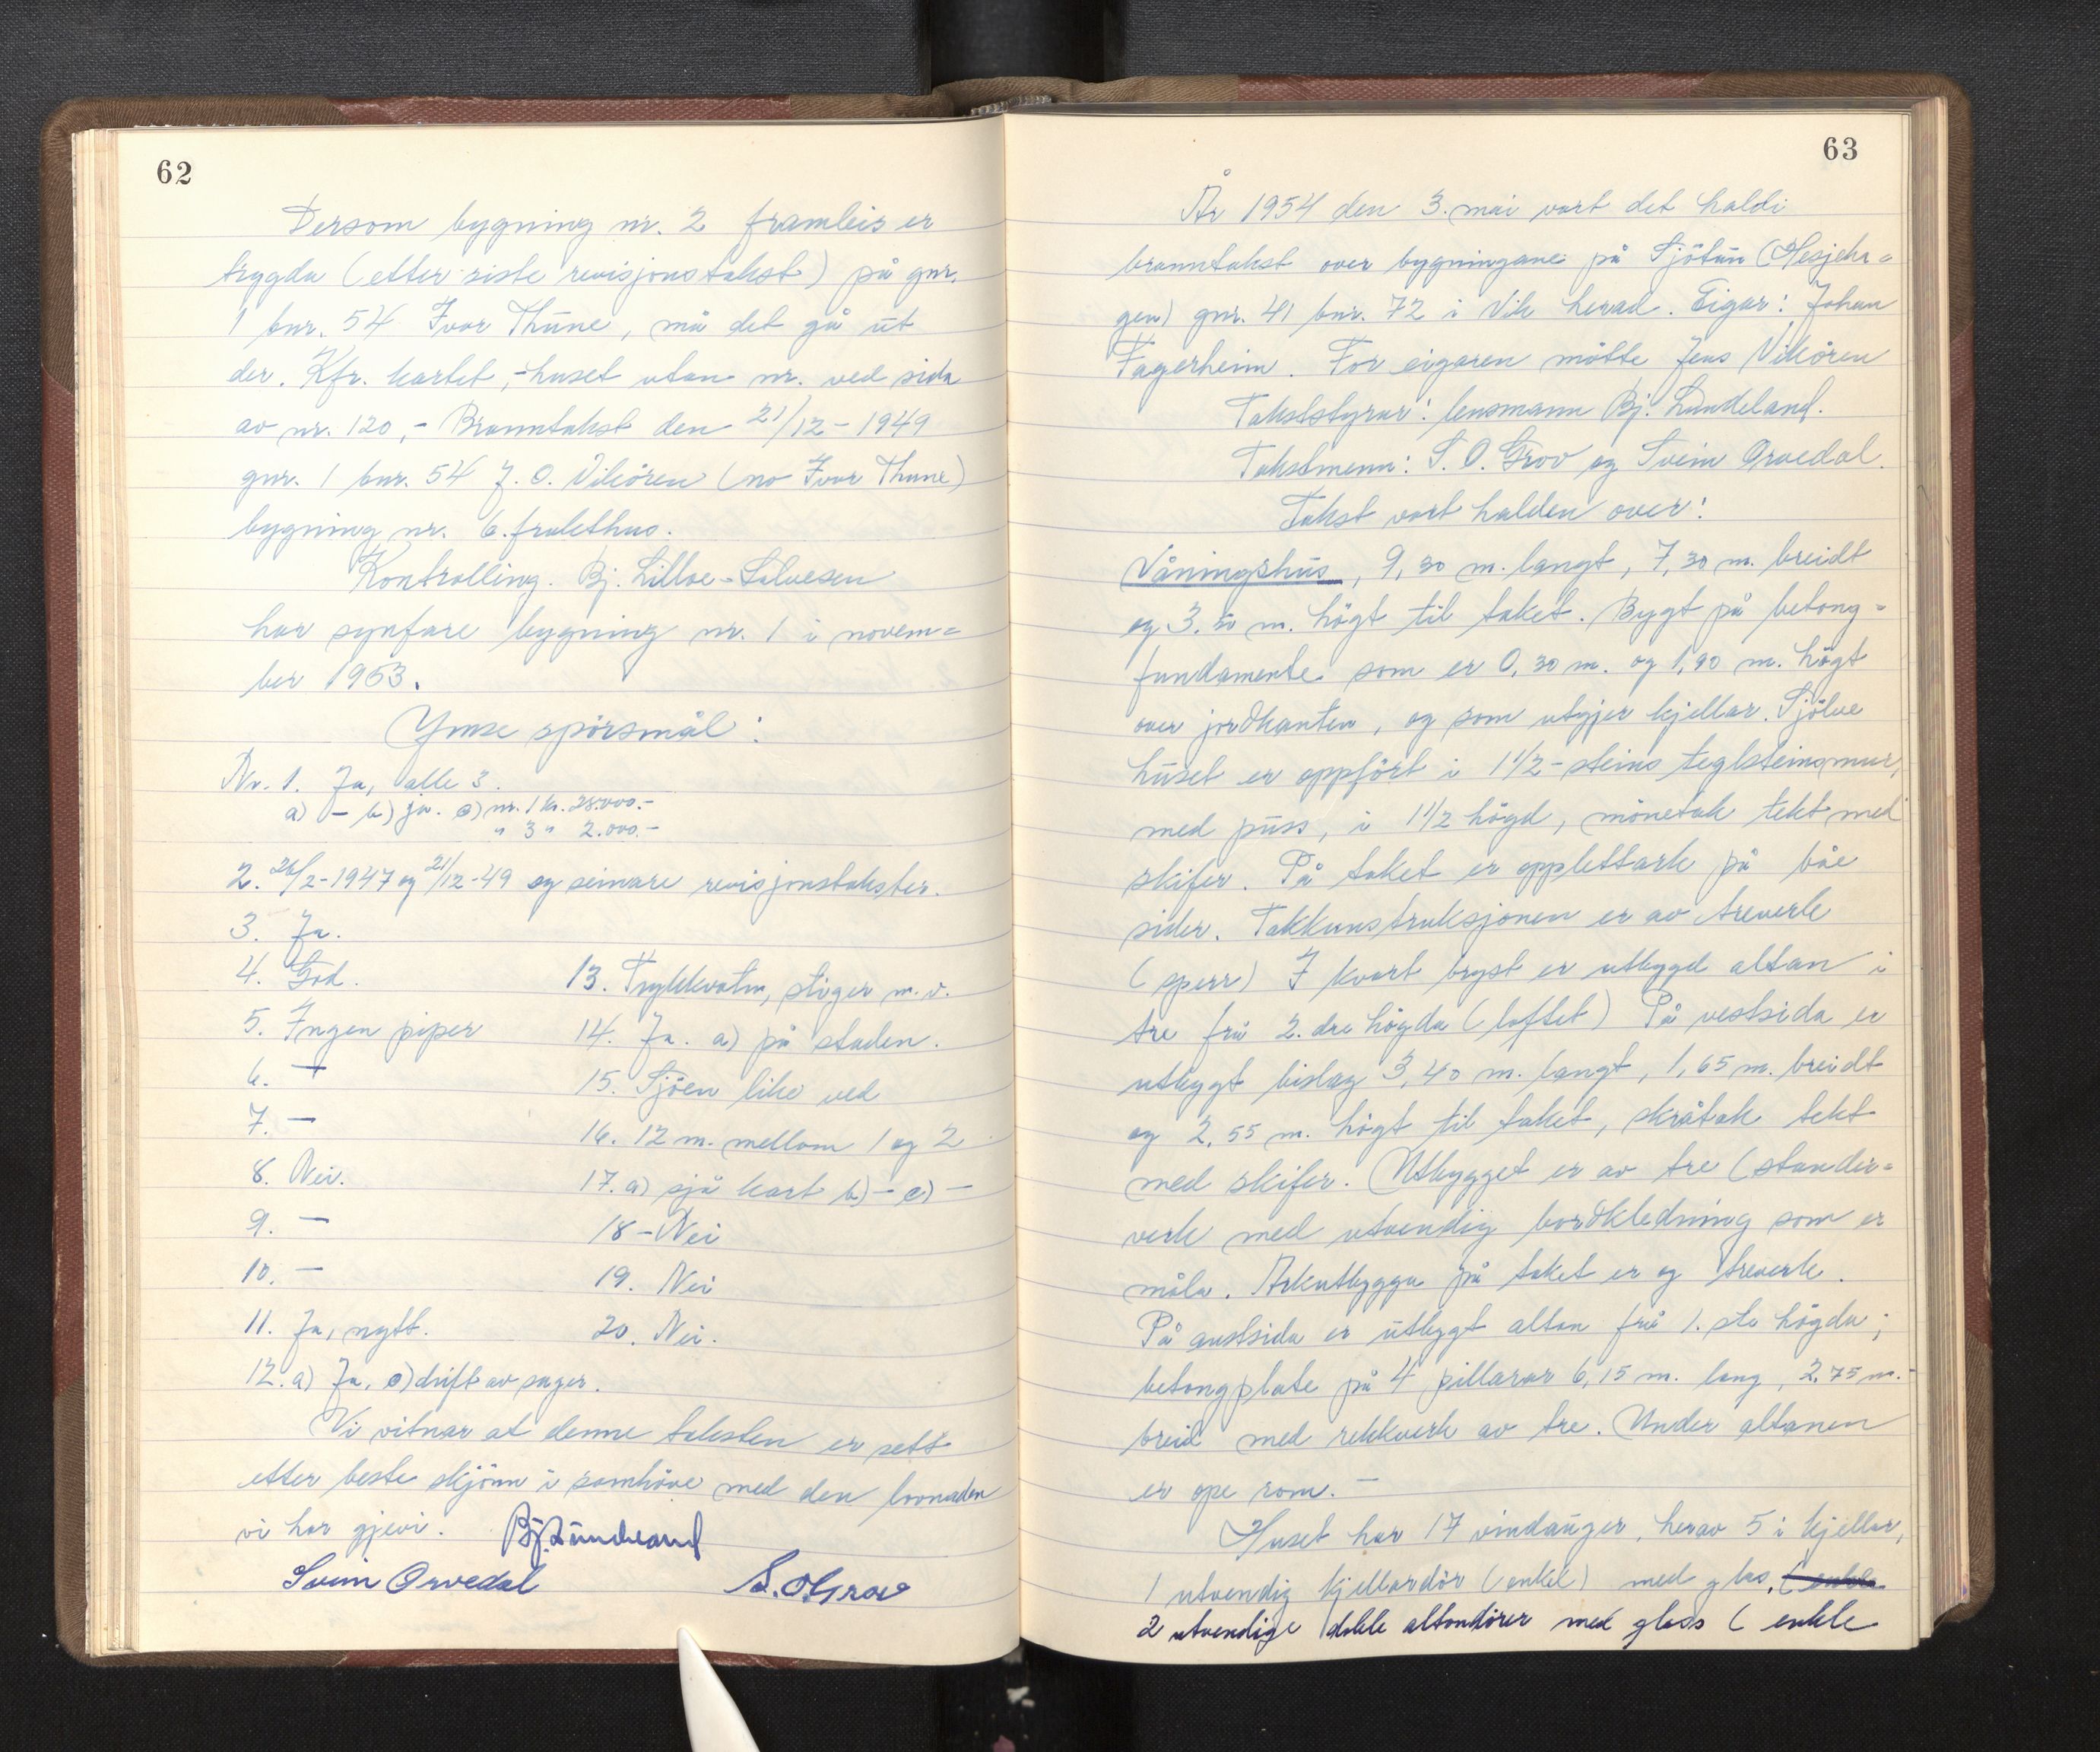 62
Dersom bygning nr. 2 framleis er
trygda (etter siste revisjonstakst) på gnr.
1 bnr. 54 Ivar Thune, må det gå ut
der. Kfr. kartet, - huset utan nr. ved sida
av nr. 120, - Branntakst den 21/12 - 1949
gnr. 1 bnr. 54 J. O. Vikören (no Ivar Thune)
bygning nr. 6. frukthus.
Kontrolling. Bj. Lilloe-Salvesen
har synfare bygning nr. 1 i novem=
ber 1953.
Ymse spörsmål:
Nr. 1. Ja, alle 3.
a) - b) ja. c) nr. 1 kr. 28.000.-
" 3 " 2.000.-
2. 26/2-1947 og 21/12-49 og seinare revisjonstakster.
3. Ja.
4. God.
5. Ingen piper
6. -
7. -
8. Nei.
9. -
10. -
11. Ja, nytt.
12. a) Ja, c) drift av sager.
13. Trykkvatn, stiger m.v.
14. Ja. a) på staden.
15. Sjöen like ved
16. 12 m. mellom 1 og 2
17. a) sjå kart b) - c) -
18 - Nei
19. Nei
20. Nei.
Vi vitnar at denne taksten er sett
etter beste skjönn i samhöve med den lovnaden
vi har gjevi. Bj. Lundeland
Svein Orvedal S. O. Grov
63
År 1954 den 3. mai vart det haldi
branntakst over bygningane på Sjötun (Hesjeha=
gen) gnr. 41 bnr. 72 i Vik herad. Eigar: Johan
Fagerheim. For eigaren mötte Jens Vikören
Takststyrar: lensmann Bj. Lundeland.
Takstmenn: S. O. Grov og Svein Orvedal.
Takst vart halden over:
Våningshus, 9,30 m. langt, 7,30 m. breidt
og 3.50 m. högt til taket. Bygt på betong=
fundamente som er 0,30 m. og 1,90 m. högt
over jordkanten, og som utgjer kjellar. Sjölve
huset er oppfört i 1 1/2 - steins teglsteinsmur,
med puss, i 1 1/2 högd, mönetak tekt med
skifer. På taket er opplettark på båe
sider. Takkunstruksjonen er av treverk
(sperr) I kvart bryst er utbygd altan i
tre frå 2. dre högda (loftet) På vestsida er
utbygt bislag 3,40 m. langt, 1,65 m. breidt
og 2,55 m. högt til taket, skråtak tekt
med skifer. Utbygget er av tre (stender=
verk med utvendig bordkledning som er
måla. Arkutbygga på taket er og treverk.
På austsida er utbygt altan frå 1. ste högda;
betongplate på 4 pillarar 6,15 m. lang, 2,75 m.
breid med rekkverk av tre. Under altanen
er ope rom. -
Huset har 17 vindauger, herav 5 i kjellar,
1 utvendig kjellardör (enkel) med glas, (enkle
2 utvendige doble altandörer med glass (enkle